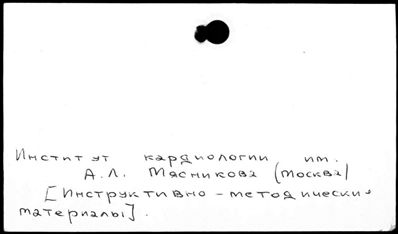 Институт кардиологии им.
А.Л. Мясникова (Москва)
[Инструктивно-методические
материалы].